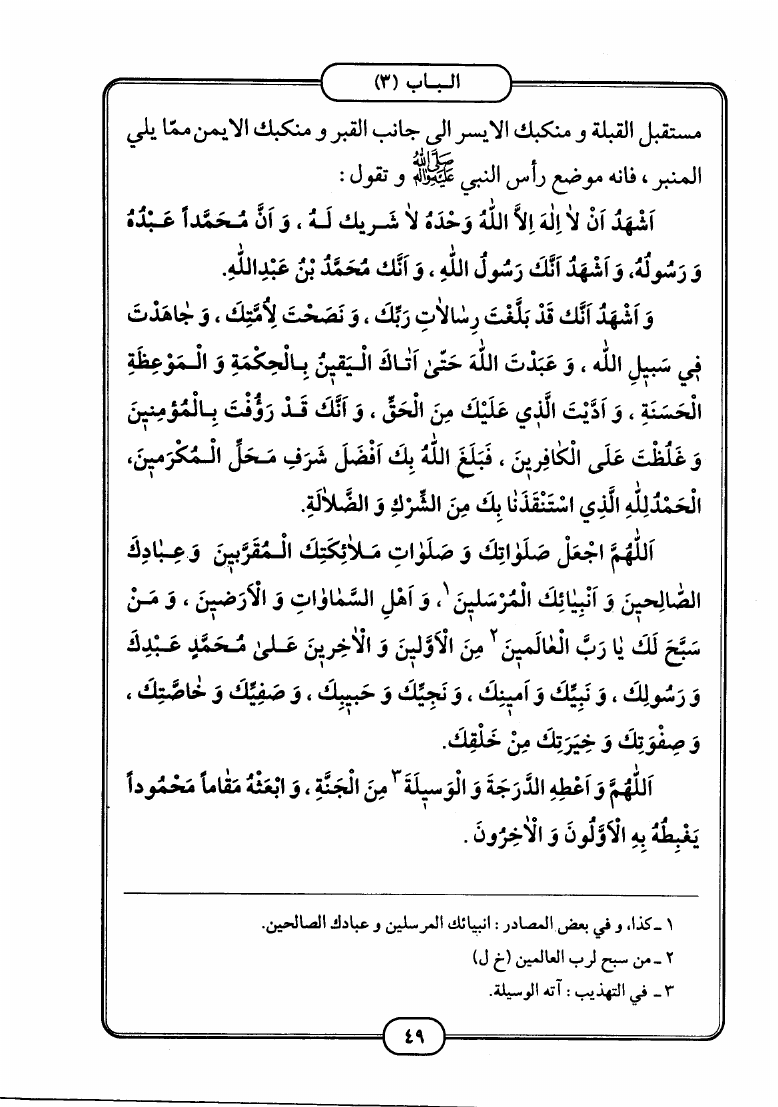 الـبـاب (٣)
مستقبل القبلة و منكبك الايسر الى جانب القبر و منكبك الايمن ممّا يلي
المنبر ، فانه موضع رأس النبي ﷺ و تقول :
اَشْهَدُ اَنْ لاٰ اِلٰهَ اِلاَّ اللّٰهُ وَحْدَهُ لاٰ شَـرِيك لَـهُ ، وَ اَنَّ مُـحَمَّداً عَـبْدُهُ
وَ رَسُولُهُ، وَ اَشْهَدُ اَنَّكَ رَسُولُ اللّٰهِ ، وَ اَنَّك مُحَمَّدُ بْنُ عَبْدِاللّٰهِ.
وَ اَشْهَدُ اَنَّك قَدْ بَلَّغْتَ رِسٰالاٰتِ رَبِّكَ ، وَ نَصَحْتَ لِاُمَّتِكَ ، وَ جٰاهَدْتَ
فِي سَبِيلِ اللّٰه ، وَ عَبَدْتَ اللّٰهَ حَتّىٰ اَتٰاكَ الْـيَقِينُ بِـالْحِكْمَةِ وَ الْـمَوْعِظَةِ
الْحَسَنَةِ ، وَ اَدَّيْتَ الَّذِي عَلَيْكَ مِنَ الْحَقِّ ، وَ اَنَّكَ قَـدْ رَؤُفْتَ بِـالْمُؤْمِنِينَ
وَ غَلُظْتَ عَلَى الْكٰافِرِينَ ، فَبَلَغَ اللّٰهُ بِكَ اَفْضَلَ شَرَفِ مَـحَلِّ الْـمُكْرَمِينَ،
الْحَمْدُلِلّٰهِ الَّذِي اسْتَنْقَذَنٰا بِكَ مِنَ الشِّرْكِ وَ الضَّلاٰلَةِ.
اَللّٰهُمَّ اجْعَلْ صَلَوٰاتِكَ وَ صَلَوٰاتِ مَـلاٰئِكَتِكَ الْـمُقَرَّبِينَ وَ عِـبٰادِكَ
الصّٰالِحِينَ وَ اَنْبِيٰائِكَ الْمُرْسَلِينَ ١، وَ اَهْلِ السَّمٰاوٰاتِ وَ الْاَرَضِينَ ، وَ مَـنْ
سَبَّحَ لَكَ يٰا رَبَّ الْعٰالَمِينَ ٢ مِنَ الْاَوَّلِينَ وَ الْاٰخِرِينَ عَـلىٰ مُـحَمَّدٍ عَـبْدِكَ
وَ رَسُولِكَ ، وَ نَبِيِّكَ وَ اَمِينِكَ ، وَ نَجِيِّكَ وَ حَبِيبِكَ ، وَ صَفِيِّكَ وَ خٰاصَّتِكَ ،
وَ صِفْوَتِكَ وَ خِيَرَتِكَ مِنْ خَلْقِكَ.
اَللّٰهُمَّ وَ اَعْطِهِ الدَّرَجَةَ وَ الْوَسِيلَةَ ٣ مِنَ الْجَنَّةِ ، وَ ابْعَثْهُ مَقٰاماً مَحْمُوداً
يَغْبِطُهُ بِهِ الْاَوَّلُونَ وَ الْاٰخِرُونَ .
١ ـ كذا، و في بعض المصادر : انبيائك المرسلين و عبادك الصالحين.
٢ ـ من سبح لرب العالمين (خ ل)
٣ ـ في التهذيب : آته الوسيلة.
٤٩